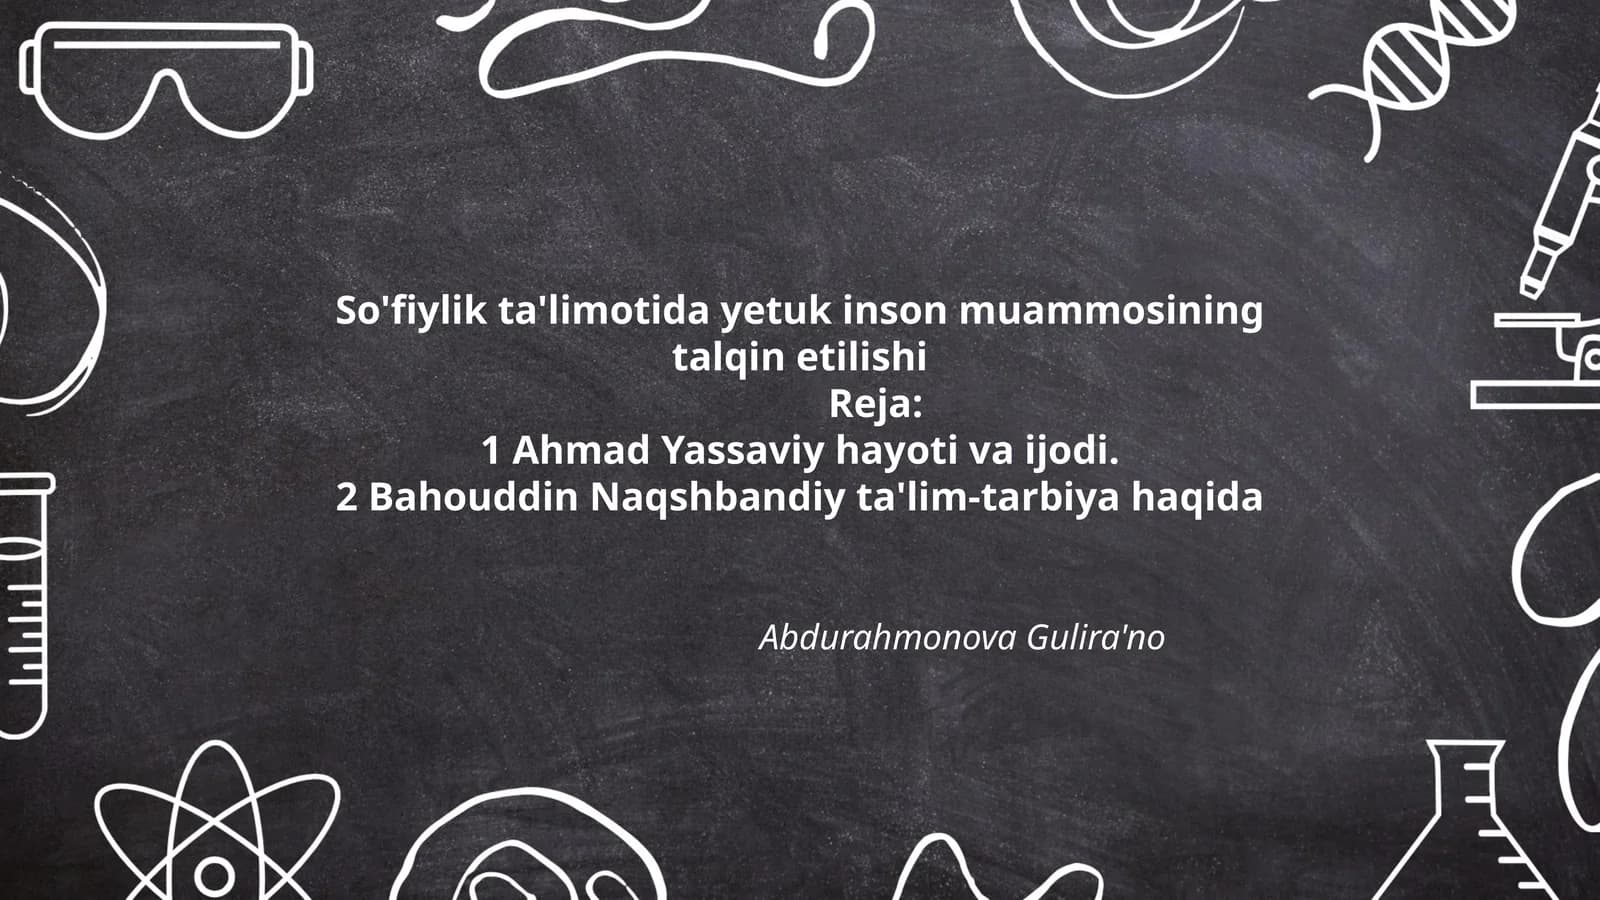 So'fiylik ta'limotida yetuk inson muammosining
talqin etilishi
Reja:
1 Ahmad Yassaviy hayoti va ijodi.
2 Bahouddin Naqshbandiy ta'lim-tarbiya haqida
Abdurahmonova Gulira'no